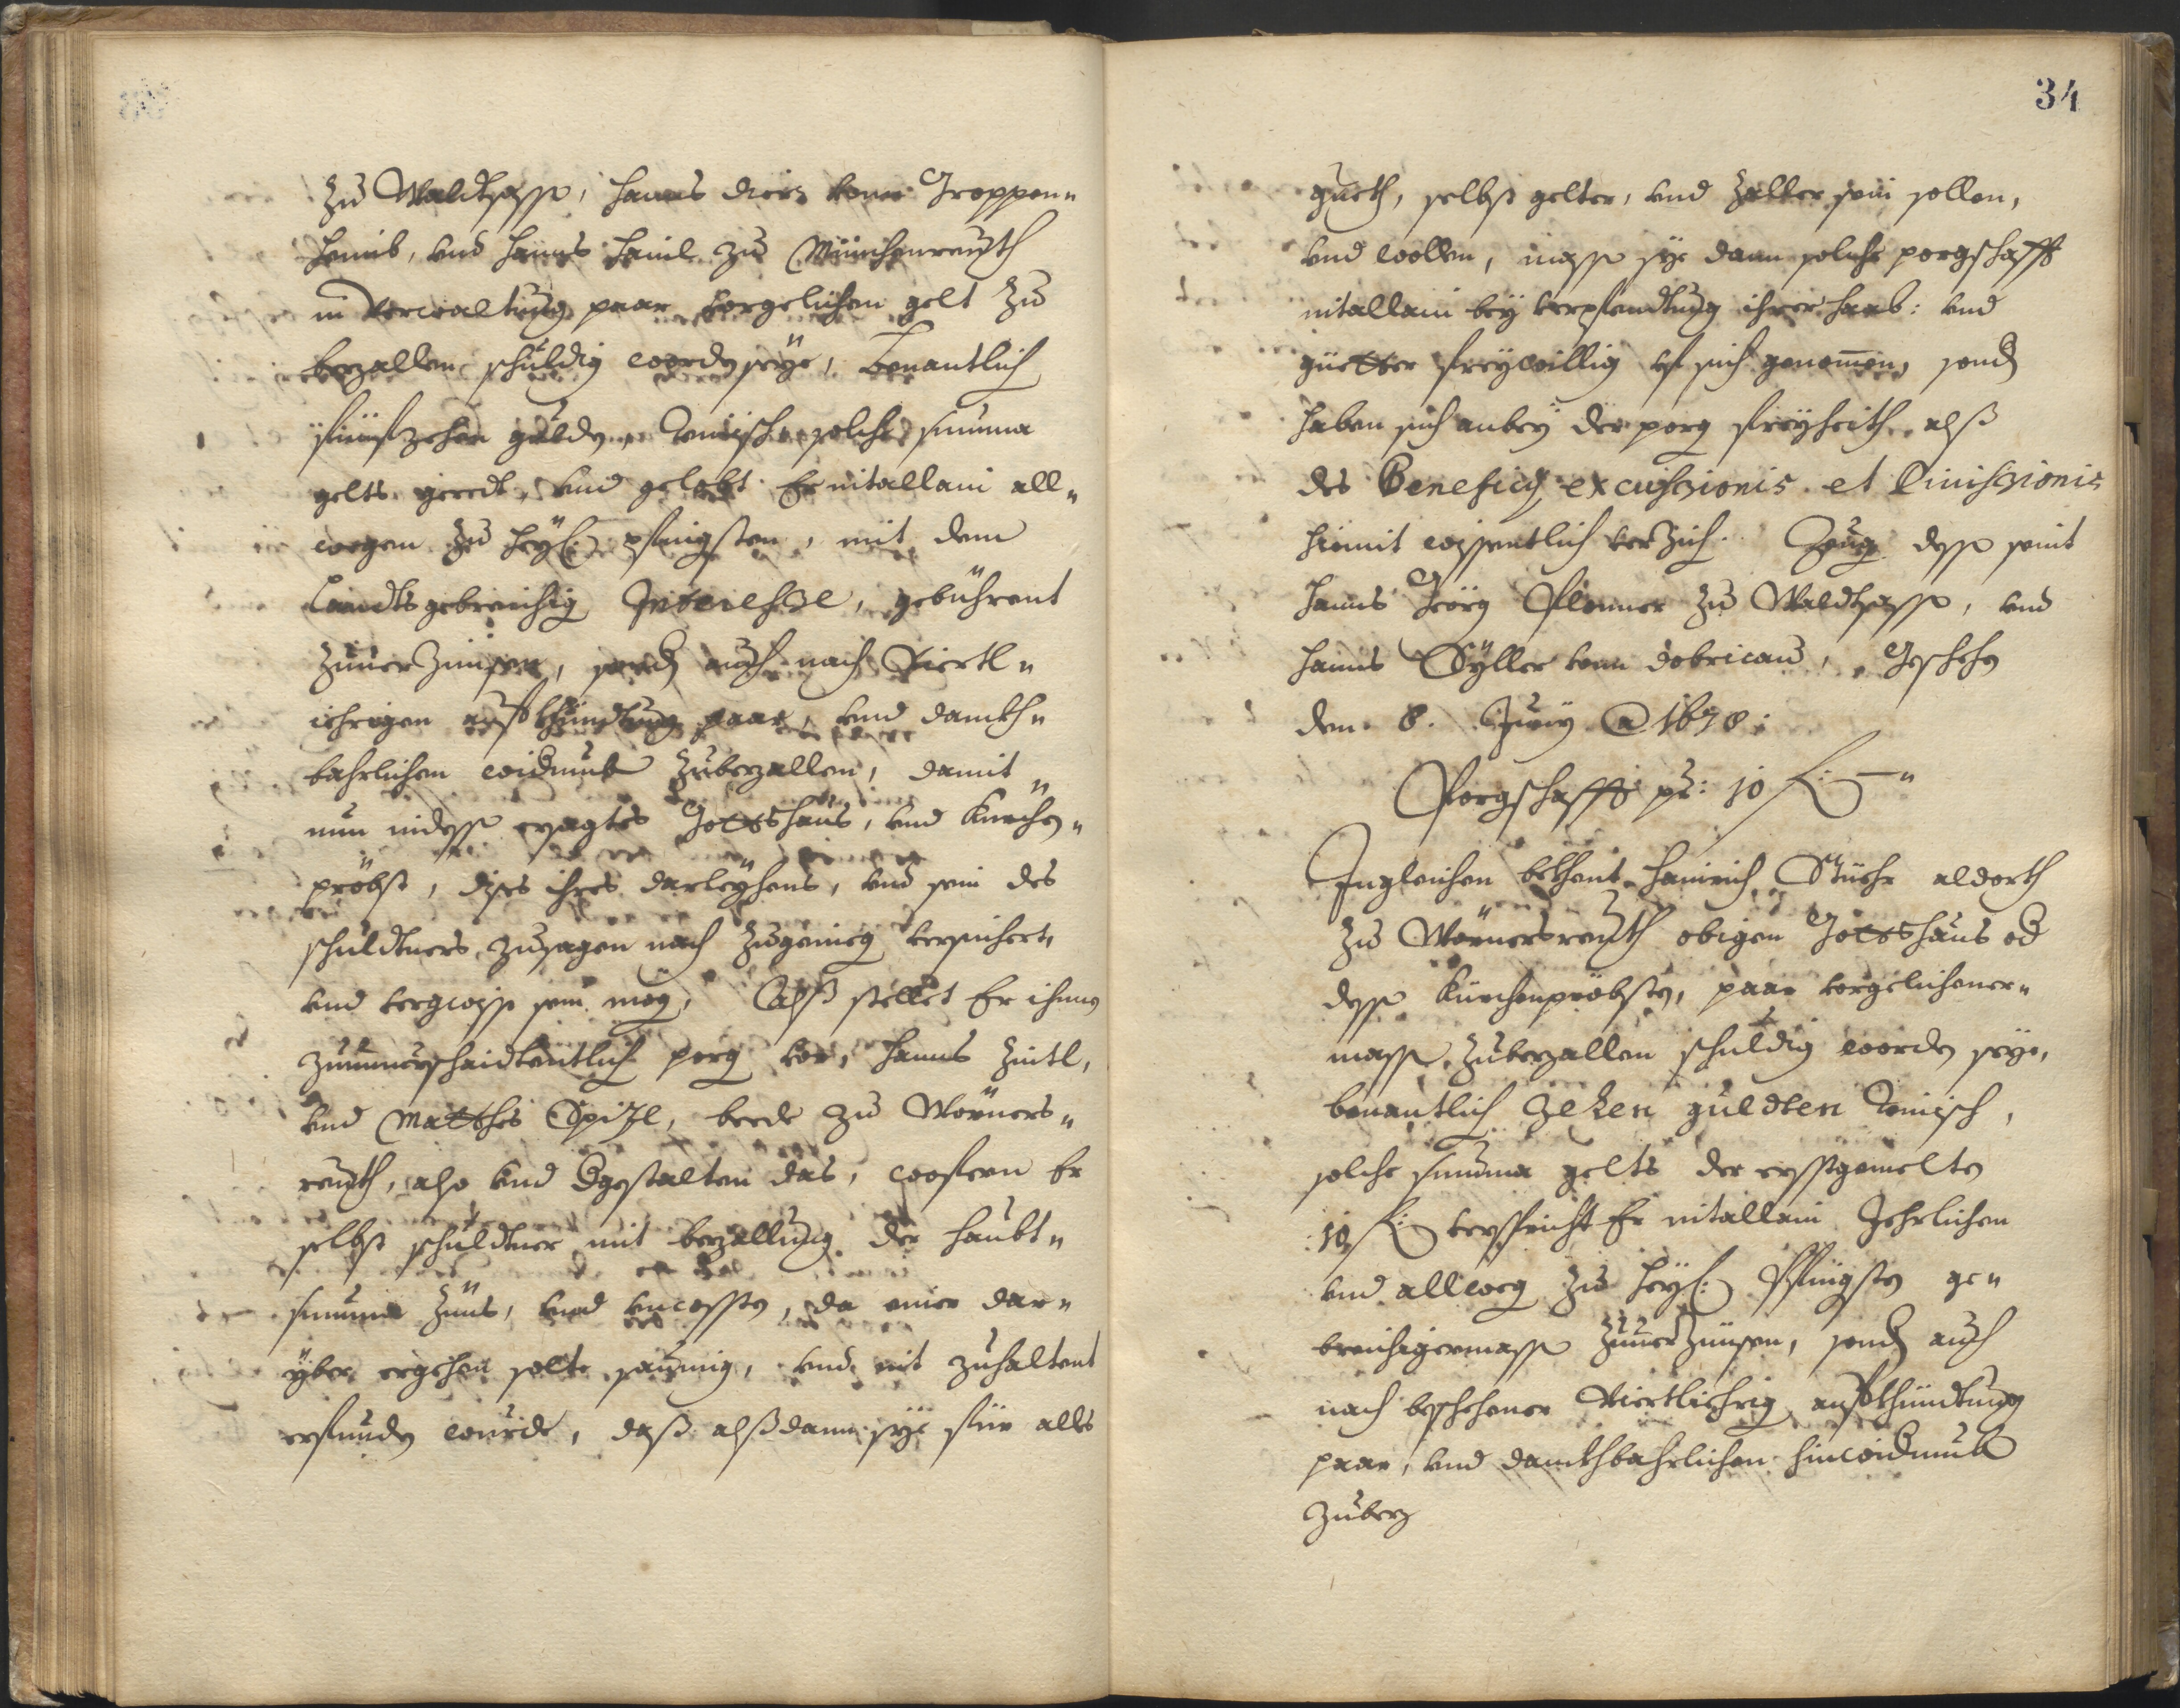 zu Waldtsasse, Hanns Dierz vonn Groppen„
Heimb, vnd Hanns Haml zu Münchenreuth
in Verwaltung paar vorgelichen gelt zu
bezallen schuldig wordn seye, Benantlich
fünfzehen guldn Reinisch, solche summa
gelts geredt, vnd gelobt Er nitallain all„
wegen zu heyl: pfingsten, mit dem
Landtsgebreichig Interehse, gebührent
zuuerZinsen, sond auch nach Viertl„
iehrigen auf khündtung paar, vnd danckh„
bahrlichen widerumb zubezallen, damit
nun indesse ersagtes Gottshaus, vnd Kürchn„
pröbst, dises ihres darleyhens, vnd sein des
schuldtners zusagen nach zugenieg versichert,
vnd vergwisse sein mög, Alß stellet Er ihnen
zuuunuerschaidtentlich porg vor, Hanns Zintl,
vnd Matthes Spizl, beede zu Wörners„
reuth, also vnd dgestalten das, wofern Er
selbst schuldtner mit bezallung der haubt„
summa Zins, vnd vncossten, da einer dar„
yber ergehen solte saumig, vnd nit zuhaltent
erfunden wurde, daß alßdann sye für alles
34
gueth, selbst gelter, vnd Zaller sein sollen,
vnd wollen, masse sye dann solche porgschafft
nitallain bey verpfendtung ihrer Haab: vnd
güetter freywillig uf sich genomen, sond
haben sich anbey der porg freyheith, alß
des Beneficy excuhsionis et Divihsionis
hiemit wissentlich verzich. Zeug desse seint
Hanns Geörg Plonner zu Waldtsasse, vnd
Hanns Syller vonn dobricau, Geschehen
den 8. Juny ao 1678:
Porgschafft pr: 10 f: —„
Ingleichen bekhent Hainrich Stüehr aldorth
zu Wörnersreuth obigen Gottshaus od
desse Kürchenpröbstn, paar vorgelichener„
masse zubezallen schuldig wordn seye,
benantlich Zehen guldten Reinisch,
solche summa gelts der erstgemelten
10 f: verspricht Er nitallain Jehrlichen
vnd allweg zu heyl: Pfingstn ge„
breichigermasse zuuerZinsen, sond auch
nach beschehener Viertliehrig aufkhündtung
paar, vnd danckhbahrlichen hinwiderumb
zubez